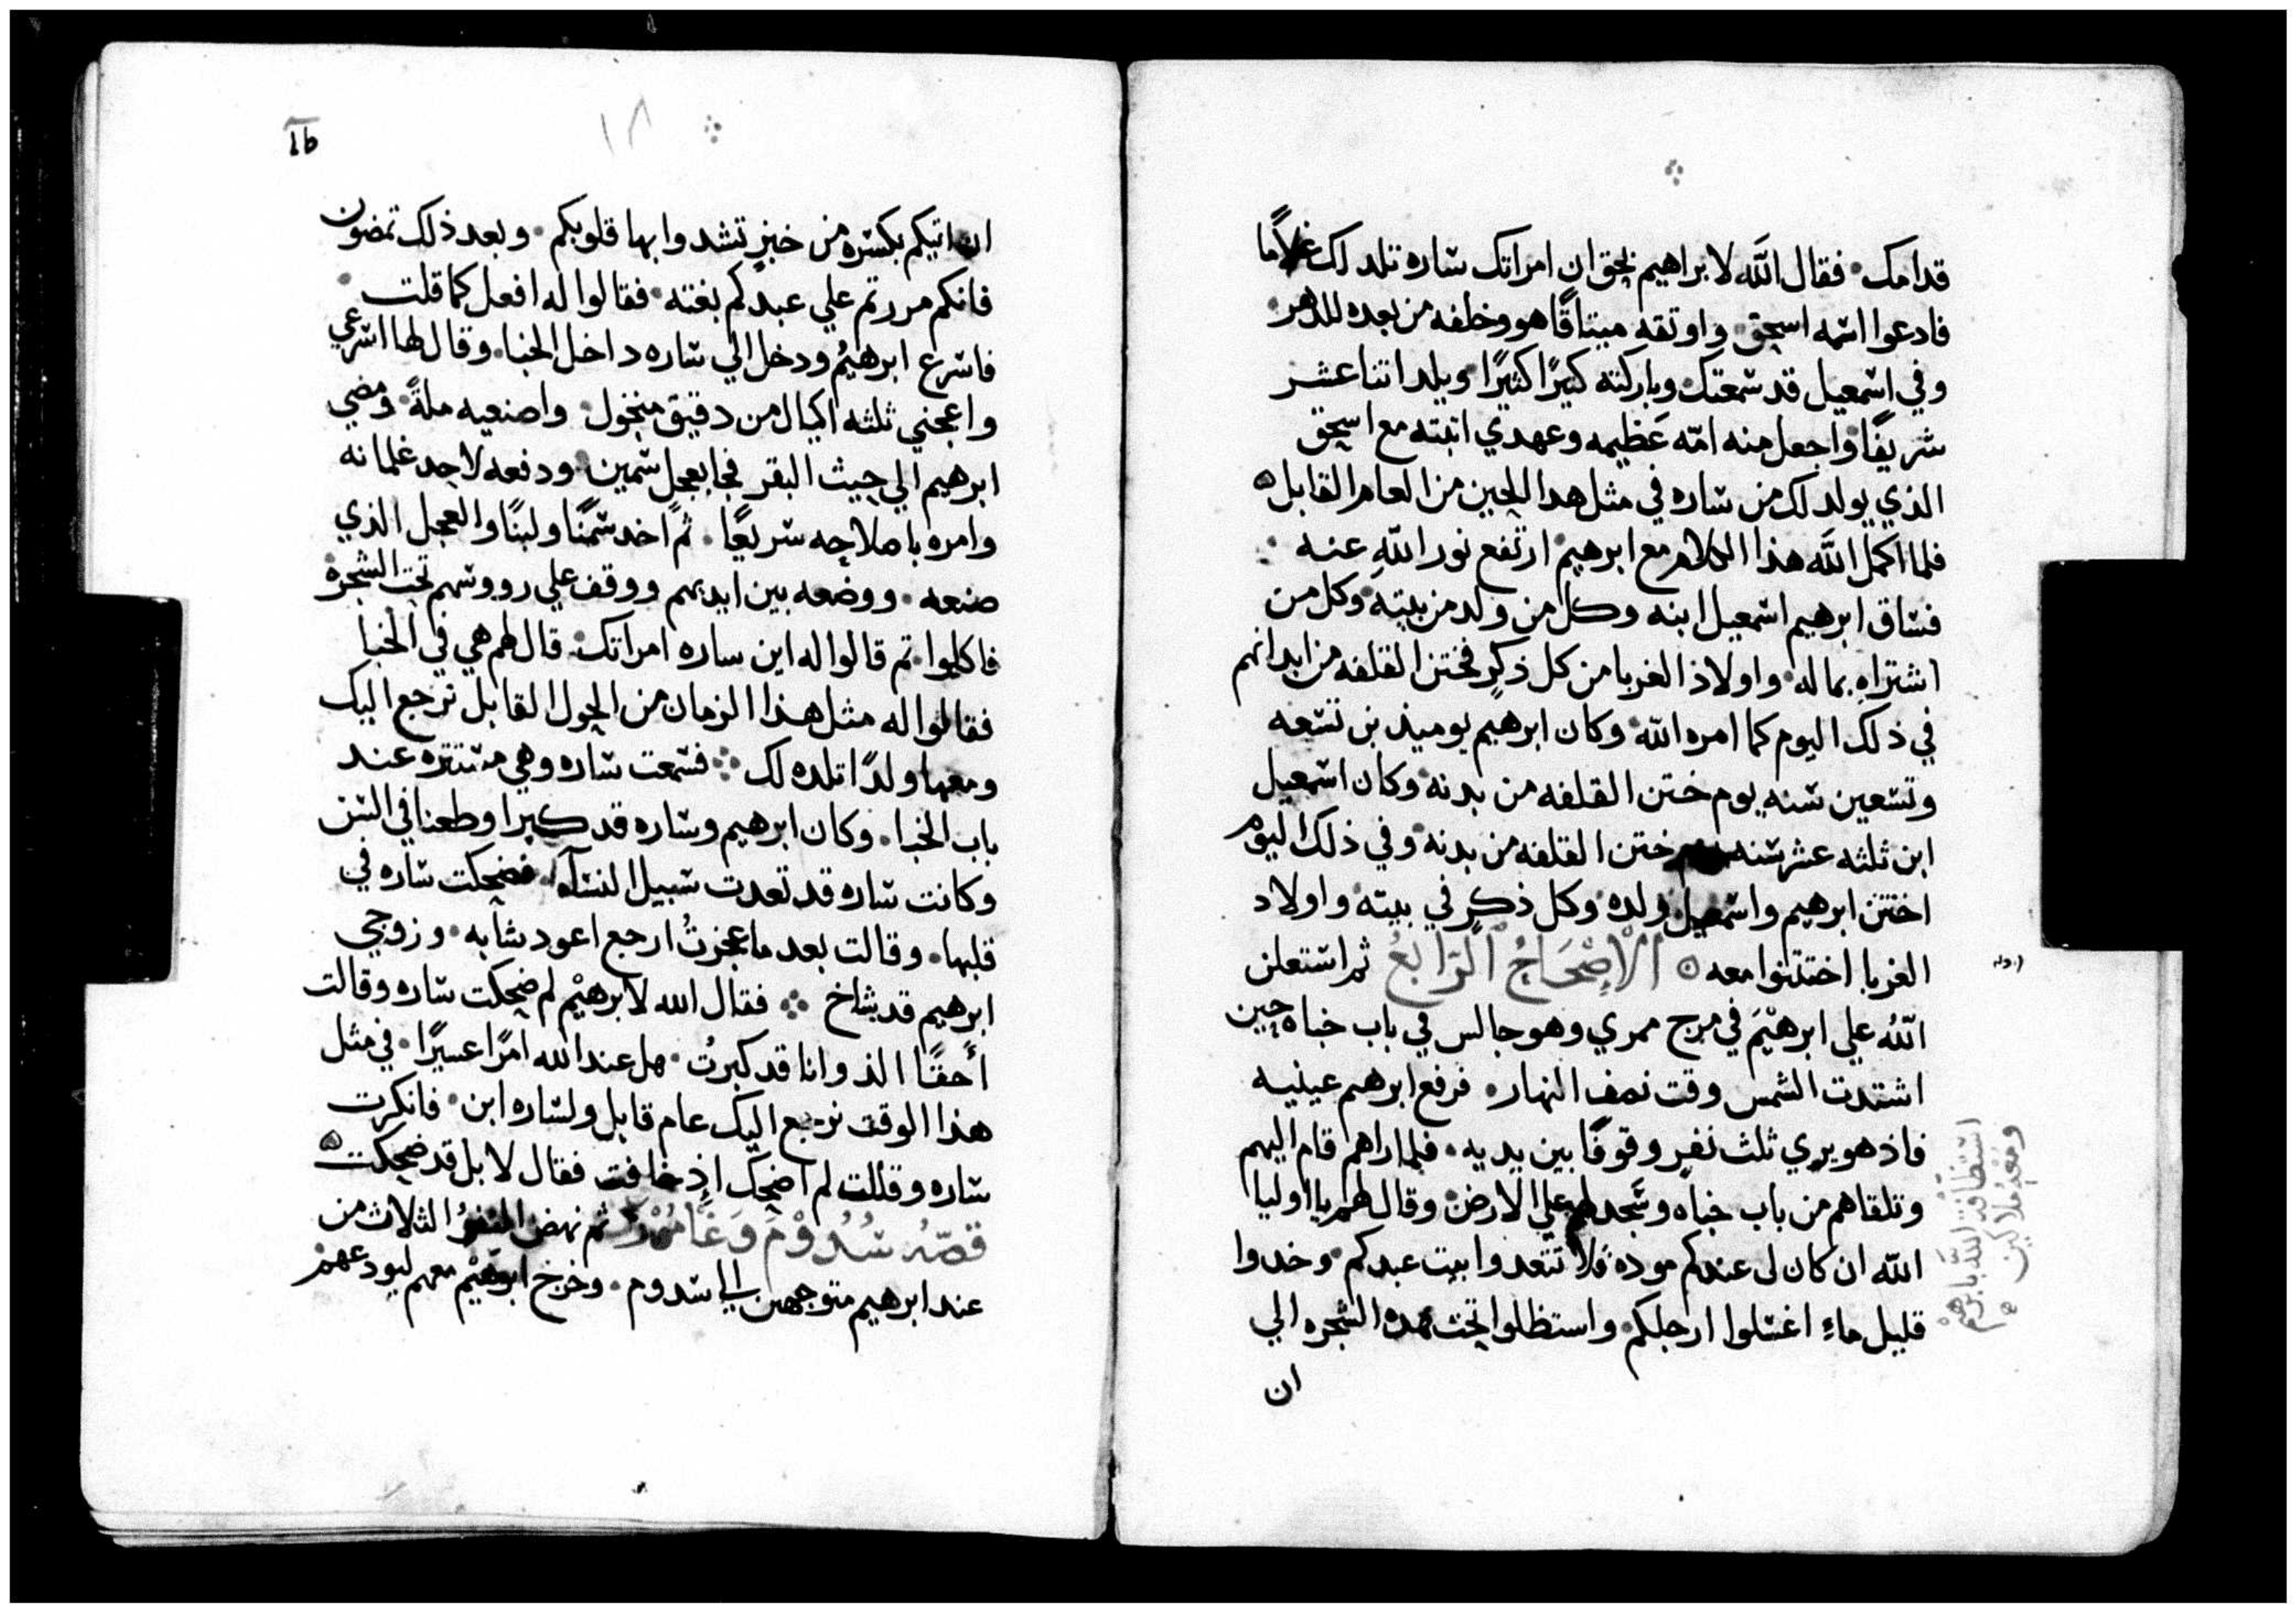 قدامك فقال الله لابراهيم بحق ان امراتك ساره تلد لك غلاما
فادعوا اسمه اسحق واوثقه ميثاقًا هو وخلفه من بعده للدهر
وفي اسمعيل قد سمعتك وباركته كبيرًا كثيرًا ويلد اثنا عشر
شريفًا واجعل منه امّه عظيمه وعهدي اثبته مع اسحق
الذي يولد لك من ساره في مثل هدا الحين من العام القابل
فلما اكمل الله هذا الكلام مع ابرهيم ارتفع نور الله عنه
فساق ابرهيم اسمعيل ابنه وكل من ولد من بيته وكل من
اشتراه بماله واولاد الغربا من كل ذكرٍ فختن القلفه من ابدانهم
في ذلك اليوم كما امره الله وكان ابرهيم يوميذ بن تسعه
وتسعين سنه يوم ختن القلفه من بدنه وكان اسمعيل
ابن ثلثه عشر سنه يوم ختن القلفه من بدنه وفي ذلك اليوم
اختتن ابرهيم واسمعيل ولده وكل ذكرٍ في بيته واولاد
الغربا اختتنوا معه الاصحاح الرابع ثم استعلن
الله علي ابرهيم في مرج ممري وهو جالس في باب خباه حين
اشتدت الشمس وقت نصف النهار فرفع ابرهيم عينيه
فاذ هو يري ثلث نفرٍ وقوفًا بين يديه فلما راهم قام اليهم
وتلقاهم من باب خباه وسجد لهم علي الارض وقال لهم يا اوليا
الله ان كان لى عندكم موده فلا تتعدوا بيت عبدكم وخدوا
قليل ماءٍ اغسلوا ارجلكم واستظلوا تحت هده الشجره الي
ان
استضافة الله بابرهيم
ومعه ملاكين
16
١٨
ان اتيكم بكسره من خبزٍ تشدوا بها قلوبكم وبعد ذلك تمضون
فانكم مررتم علي عبدكم بغته فقالوا له افعل كما قلت
فاسرع ابرهيم ودخل الي ساره داخل الخبا وقال لها اسرعي
واعجني ثلثه اكيال من دقيق منخول واصنعيه ملةً ومضي
ابرهيم الي حيث البقر فجا بعجلٍ سمين ودفعه لاحد غلمانه
وامره باصلاحه سريعًا ثم اخد سمنًا ولبنًا والعجل الذي
صنعه ووضعه بين ايديهم ووقف علي رووسهم تحت الشجره
فاكلوا ثم قالوا له اين ساره امراتك قال لهم هي في الخبا
فقالوا له مثل هذا الزمان من الحول القابل نرجع اليك
ومعها ولدًا تلده لك فسمعت ساره وهي مستتره عند
باب الخبا وكان ابرهيم وساره قد كبرا وطعنا في السن
وكانت ساره قد تعدت سبيل النساء فضحكت ساره في
قلبها وقالت بعد ما عجزتُ ارجع اعود شابه وزوجي
ابرهيم قد شاخ فقال الله لابرهيم لم ضحكت ساره وقالت
أحقًا الد وانا قد كبرتُ هل عند الله امرًا عسيرًا في مثل
هذا الوقت نرجع اليك عام قابل ولساره ابن فانكرت
ساره وقالت لم اضحك اذ خافت فقال لا بل قد ضحكت
قصّه سُدُوْمَ وَغَامُوْرَه ثم نهض النفر الثلاث من
عند ابرهيم متوجهين الي سدوم وخرج ابرهيم معهم ليودعهم